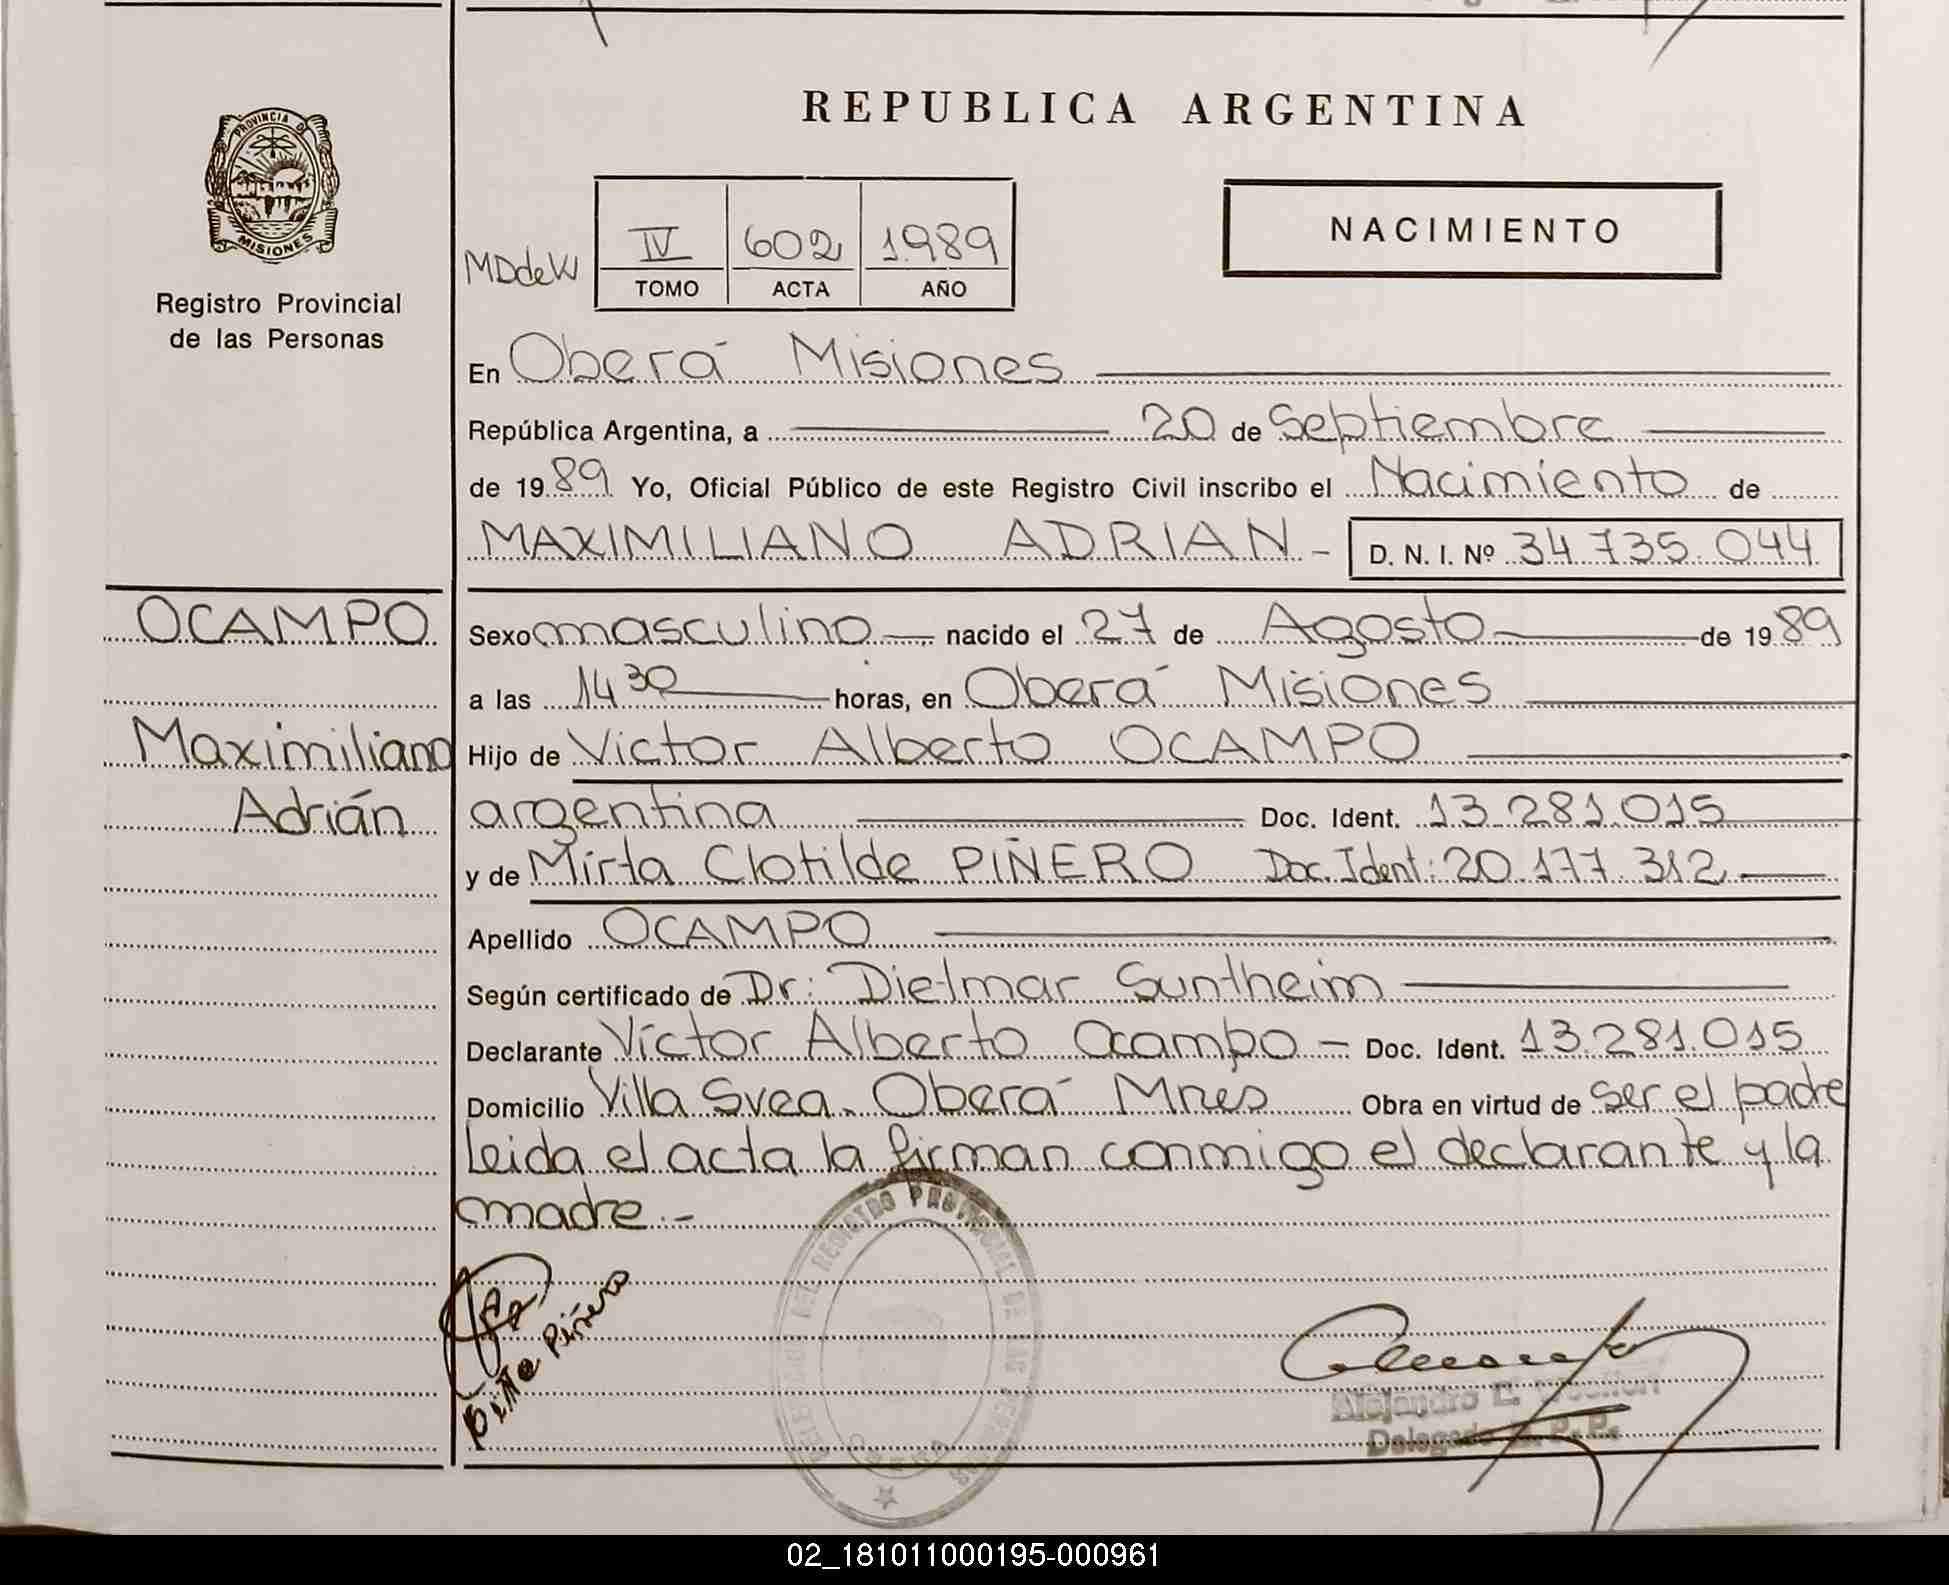 REPUBLICA ARGENTINA
PROVINCIA DE
MISIONES
Registro Provincial
de las Personas
NACIMIENTO
MDdeW
IV 602 1989
TOMO ACTA AÑO
En Oberá Misiones
República Argentina, a 20 de Septiembre
de 1989 Yo, Oficial Público de este Registro Civil inscribo el Nacimiento de
MAXIMILIANO ADRIAN - D. N. I. Nº 34.735.044
OCAMPO
Maximiliano
Adrián
Sexo masculino nacido el 27 de Agosto de 1989
a las 14 30 horas, en Oberá Misiones
Hijo de Victor Alberto OCAMPO
argentina Doc. Ident. 13.281.015
y de Mirta Clotilde PIÑERO Doc. Ident: 20.177.312
Apellido OCAMPO
Según certificado de Dr: Dietmar Suntheim
Declarante Víctor Alberto Ocampo - Doc. Ident. 13.281.015
Domicilio Villa Svea. Oberá Mnes Obra en virtud de ser el padre
leida el acta la firman conmigo el declarante y la
madre.-
Piñero
DEL REGISTRO PROVINCIAL DE LAS PERSONAS
OBERA
Alejandro E.
Delegado R. P. P.
02_181011000195-000961